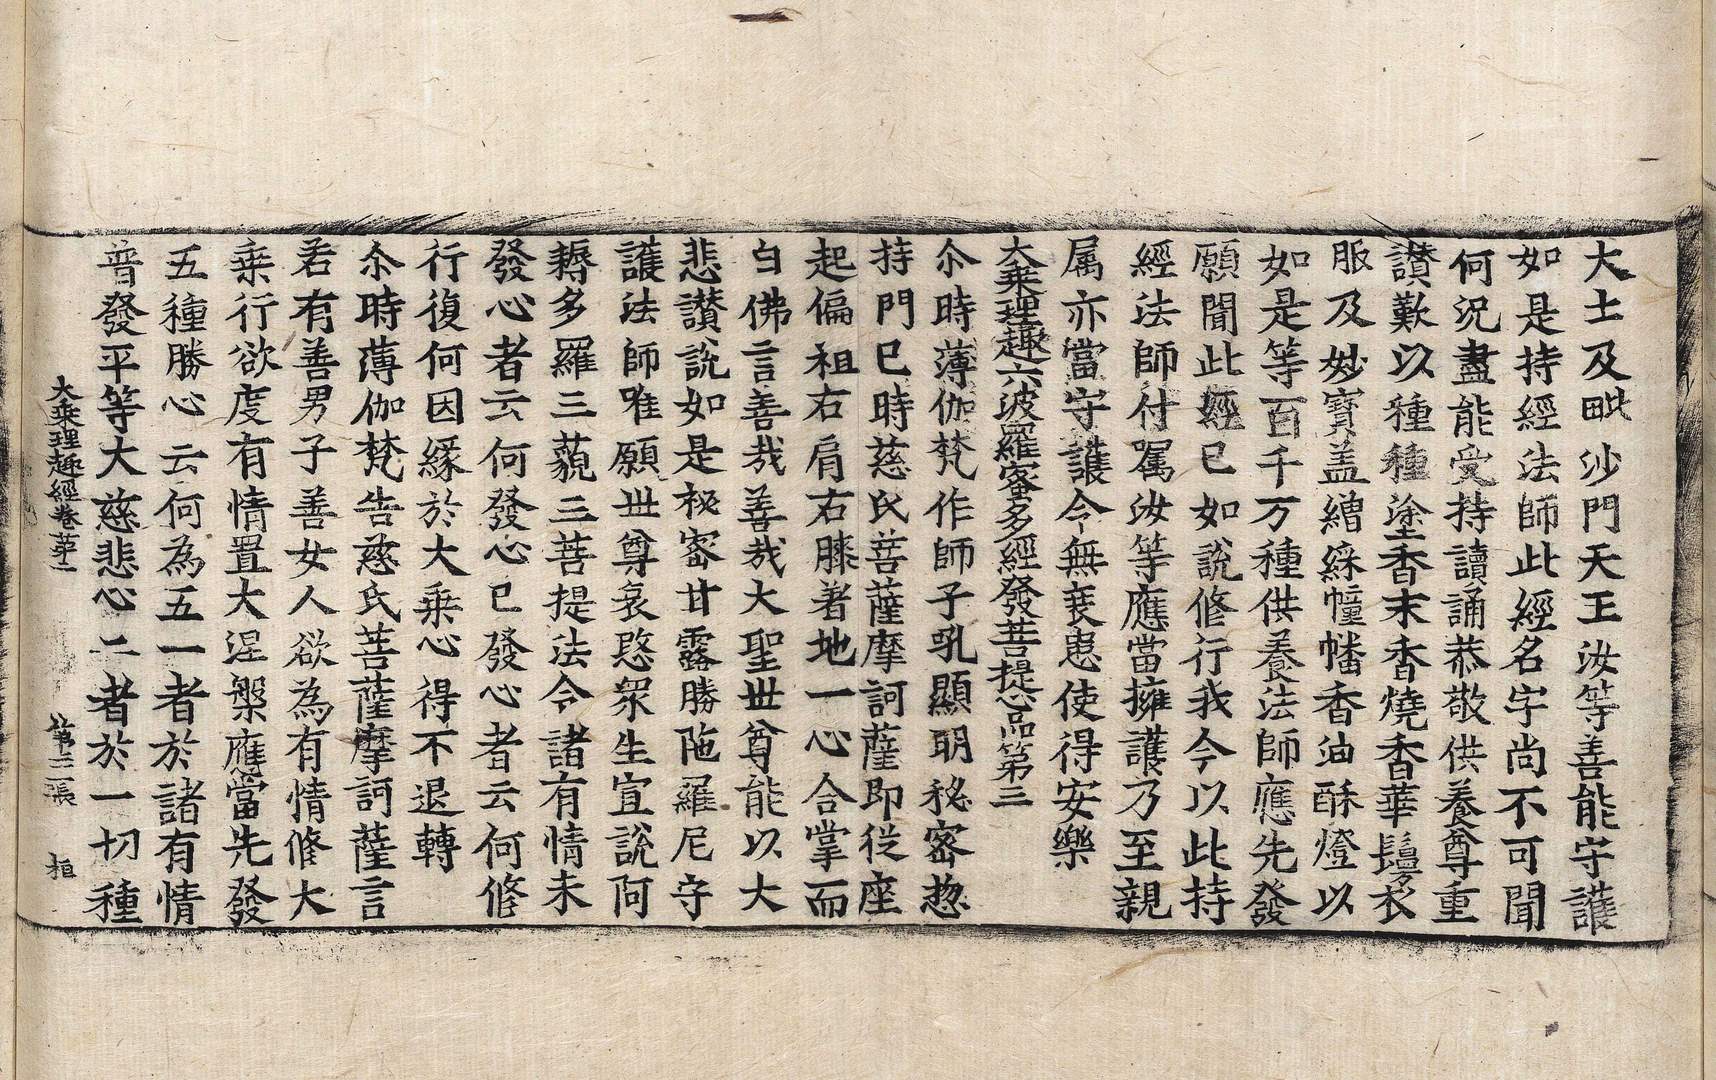 大士及毗沙門天王汝等善能守護
如是持經法師此經名字尚不可聞
何況盡能受持讀誦恭敬供養尊重
讃歎以種種塗香末香燒香華鬘衣
服及妙寶盖繒綵幢幡香油酥燈以
如是等百千万種供養法師應先發
願聞此經已如說修行我今以此持
經法師付嘱汝等應當擁護乃至親
属亦當守護令無衰患使得安樂
大乗理趣六波羅蜜多經發菩提心品第三
尒時薄伽梵作師子吼顯明秘密揔
持門已時慈氏菩薩摩訶薩即從座
起偏袒右肩右膝著地一心合掌而
白佛言善哉善哉大聖世尊能以大
悲讃說如是秘密甘露勝陁羅尼守
護法師唯願世尊哀愍衆生宣說阿
耨多羅三藐三菩提法令諸有情未
發心者云何發心已發心者云何修
行復何因緣於大乗心得不退轉
尒時薄伽梵告慈氏菩薩摩訶薩言
若有善男子善女人欲為有情修大
乗行欲度有情置大涅槃應當先發
五種勝心云何為五一者於諸有情
普發平等大慈悲心二者於一切種
大乗理趣經卷苐二　苐三張　桓